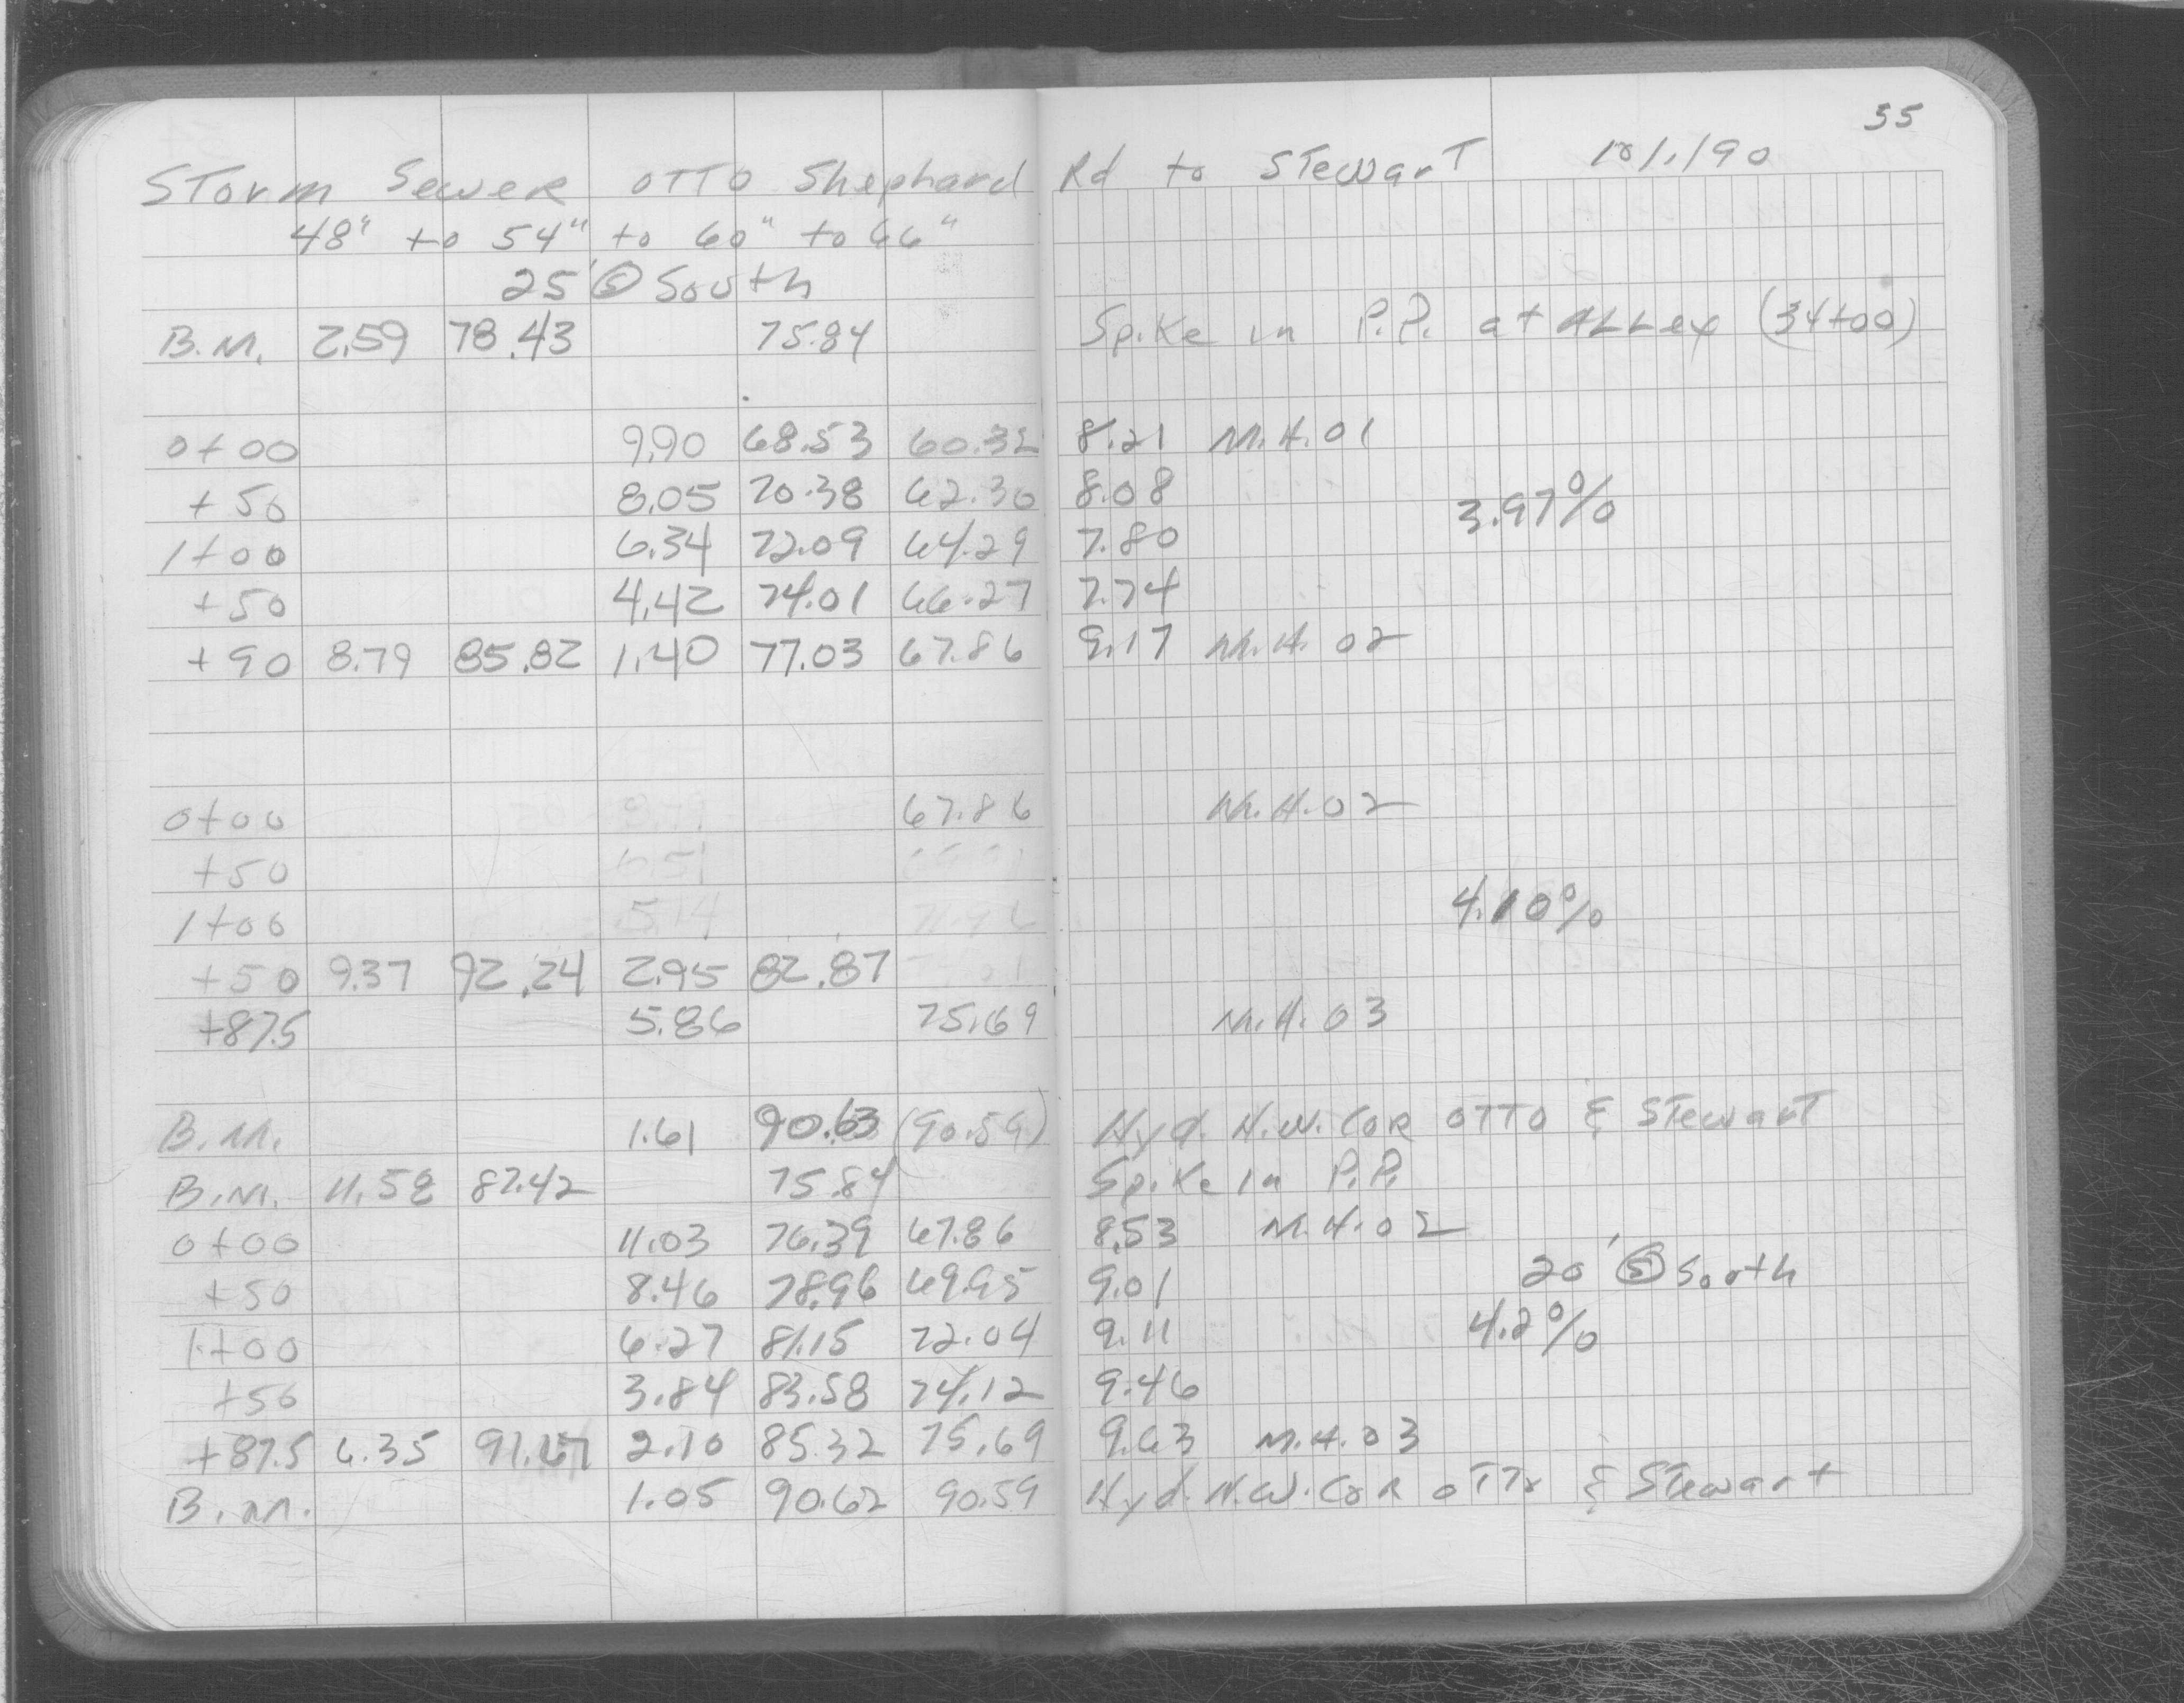 55
Storm Sewer OTTO Shephard Rd to Stewart 10/1/90
48" to 54" to 60" to 66"
25' @ South
B.M. 2.59 78.43 75.84 Spike in P.P. at ALLey (34+00)
0+00 9.90 68.53 60.32 8.21 M.H. 01
+50 8.05 70.38 62.30 8.08 3.97%
1+00 6.34 72.09 64.29 7.80
+50 4.42 74.01 66.27 7.74
+90 8.79 85.82 1.40 77.03 67.86 9.17 M.H. 02
0+00 67.86 M.H. 02
+50 6.51
1+00 5.14 4.10%
+50 9.37 92.24 2.95 82.87
+87.5 5.86 75.69 M.H. 03
B.M. 1.61 90.63 (90.59) Hyd. N.W. COR OTTO & Stewart
B.M. 11.58 87.42 75.84 Spike in P.P.
0+00 11.03 76.39 67.86 8.53 M.H. 02
+50 8.46 78.96 69.95 9.01 20' @ South
1+00 6.27 81.15 72.04 9.11 4.2%
+50 3.84 83.58 74.12 9.46
+87.5 6.35 91.67 2.10 85.32 75.69 9.63 M.H. 03
B.M. 1.05 90.62 90.59 Hyd. N.W. COR OTTO & Stewart